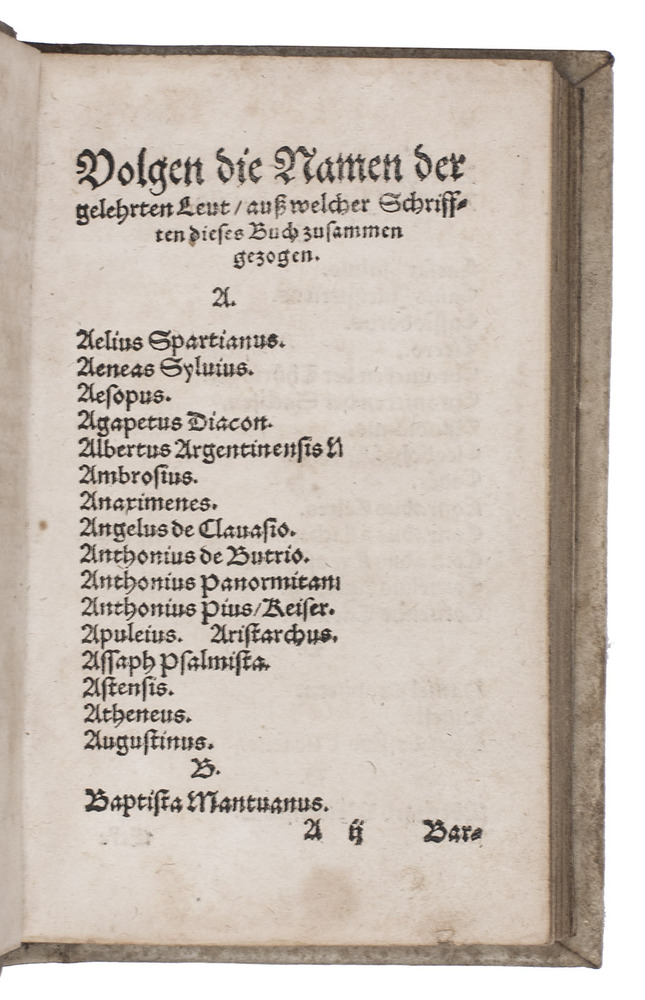 Volgen die Namen der
gelehrten Leut / auß welcher Schriff⸗
ten dieses Buch zusammen
gezogen.
A.
Aelius Spartianus.
Aeneas Syluius.
Aesopus.
Agapetus Diacon.
Albertus Argentinensis
Ambrosius.
Anaximenes.
Angelus de Clauasio.
Anthonius de Butrio.
Anthonius Panormitam
Anthonius Pius / Keiser.
Apuleius. Aristarchus.
Assaph Psalmista.
Astensis.
Atheneus.
Augustinus.
B.
Baptista Mantuanus.
A ij Bar⸗